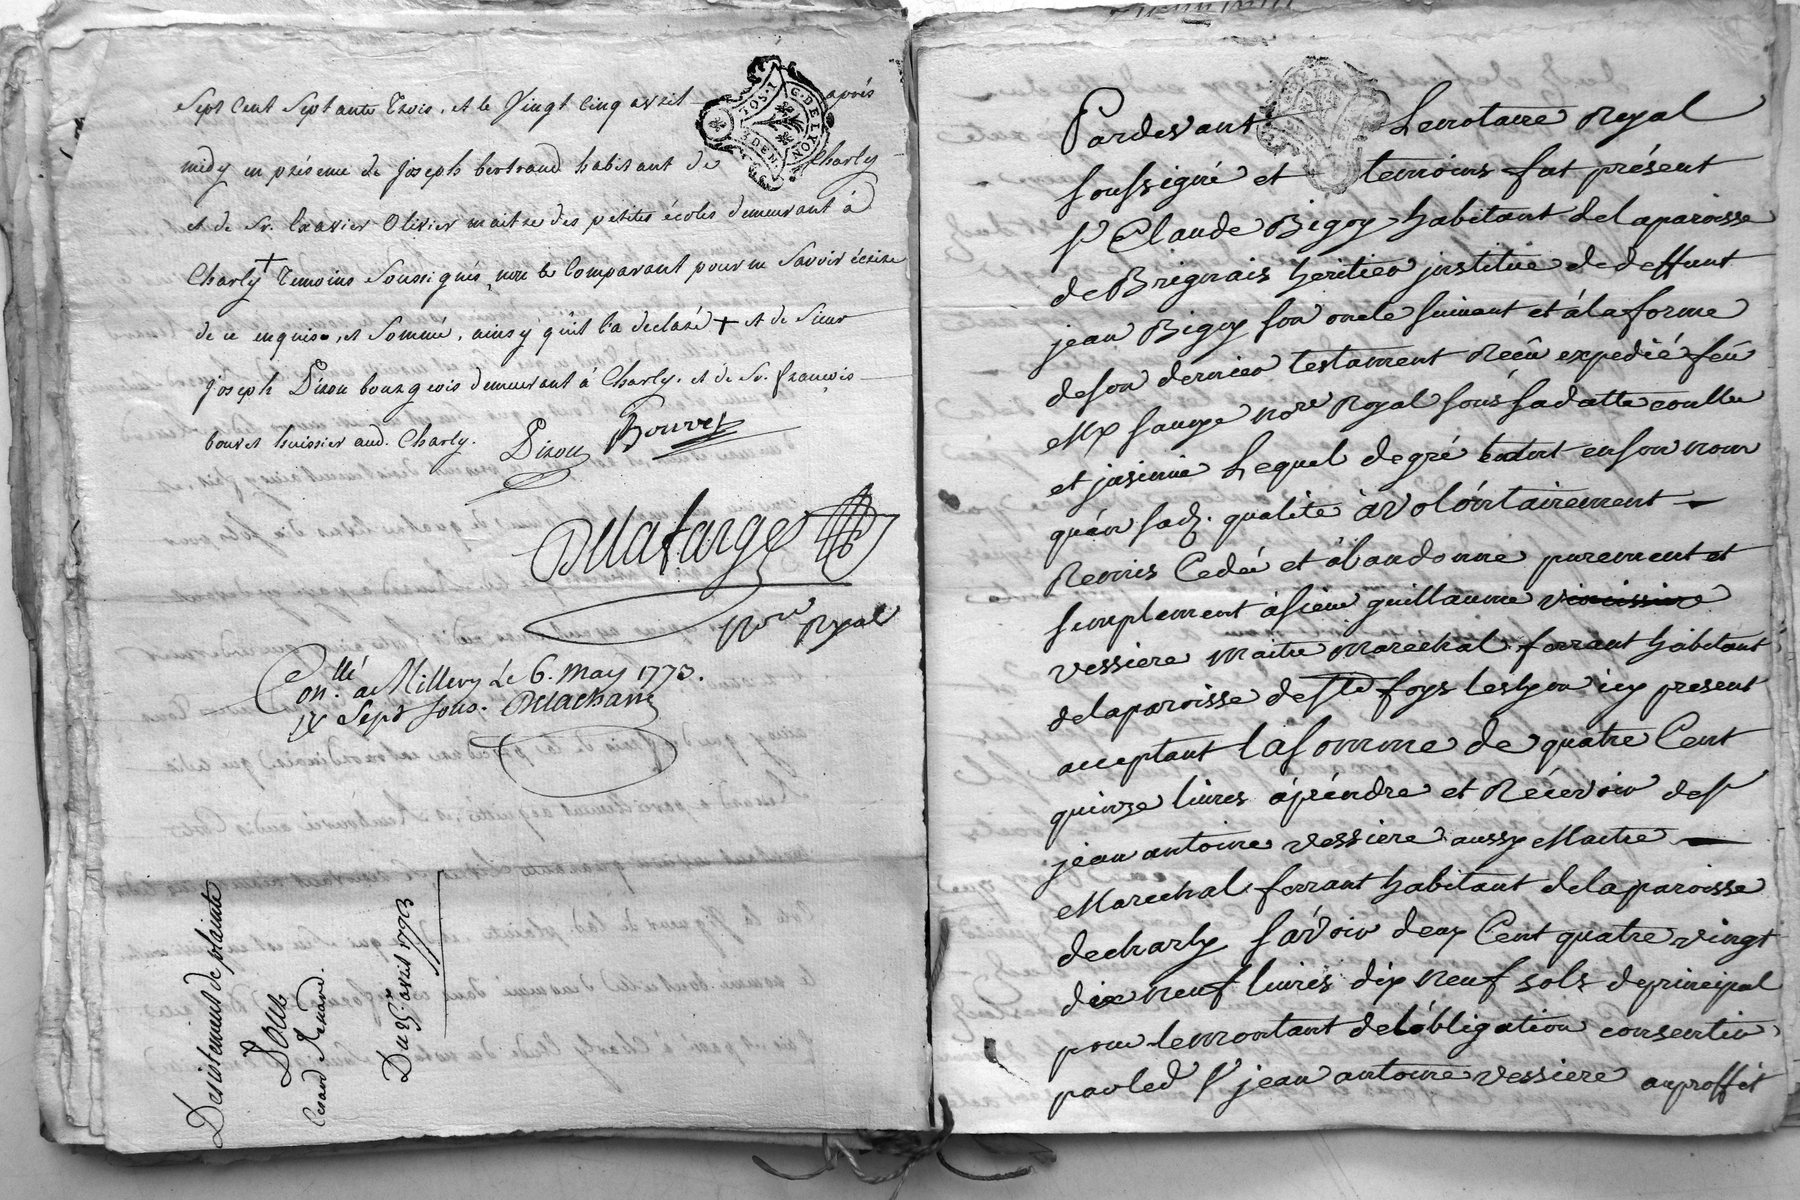 sept cent septante trois, et le vingt cinq avril après
midy en présence de joseph bertrand habitant de Charly
et de Sr. Xavier Olivier maitre des petites écoles demeurant à
Charly + temoins soussignés, non le Comparant pour ne savoir écrire
de ce enquis, et sommé, ainsy qu'il l'a declaré + et de sieur
joseph Pizou bourgeois demeurant à Charly. et de Sr. françois
bouvet huissier aud. Charly. Pizou Bouvet
Dellafarge
Nore Royal
Conllé a Millery Le 6. may 1773.
Sept sous. Delacham
Desistement de plainte
Pour
Cesard Renard.
Du 25e. avril 1773
G. DE LYON
Pardevant Lenotaire Royal
soussigné et temoins fut présent
sr Claude Bigoy habitant delaparoisse
de Brignais heritier jnstitué dedeffunt
jean Bigoy son oncle suivant et álaforme
deson dernier testament Recû expedié feû
Me sauge nore Royal sous sadatte conllé
et jnsinué Lequel degré tantat ensonnom
qu'en sad. qualité à volontairement
Remis Cedéé et ábandonné purement et
simplement ásieur guillaume
vessiere maitre marechal ferrant habitant
delaparoisse deste foys leslyon icy present
acceptant lasomme de quatre Cent
quinze livres áprendre et Récevoir desr
jean antoine vessiere aussy Maitre
Marechal ferrant habitant delaparoisse
decharly sávoir deux Cent quatre vingt
dix neuf livres dix neuf sols deprincipal
pour lemontant delóbligation consentie
parled sr jean antoine vessiere auproffit